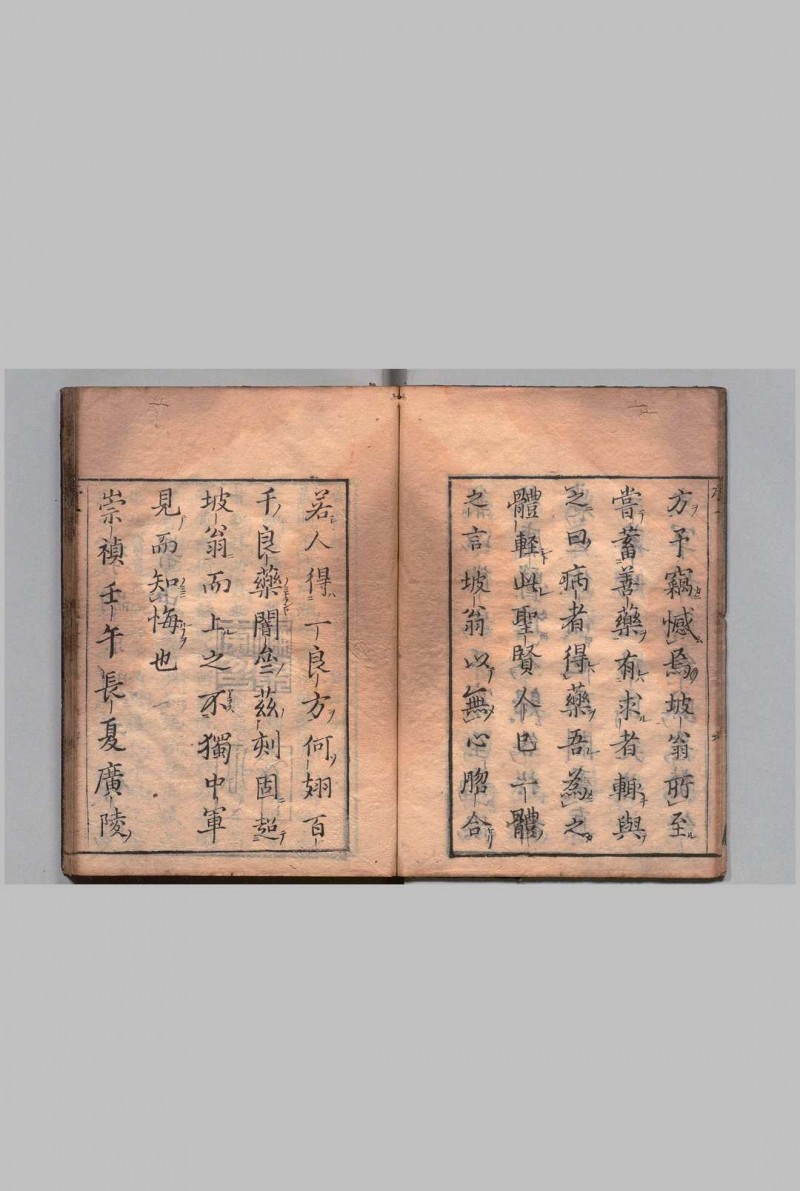 方予竊憾焉坡翁所至
嘗蓄善藥有求者輙與
之曰病者得藥吾為之
體軽此聖賢人己一體
之言坡翁以無心脗合
若人得一良方何翅百
千良藥闇茲刻固超
坡翁而上之不獨中軍
見而知悔也
崇禎壬午長夏廣陵